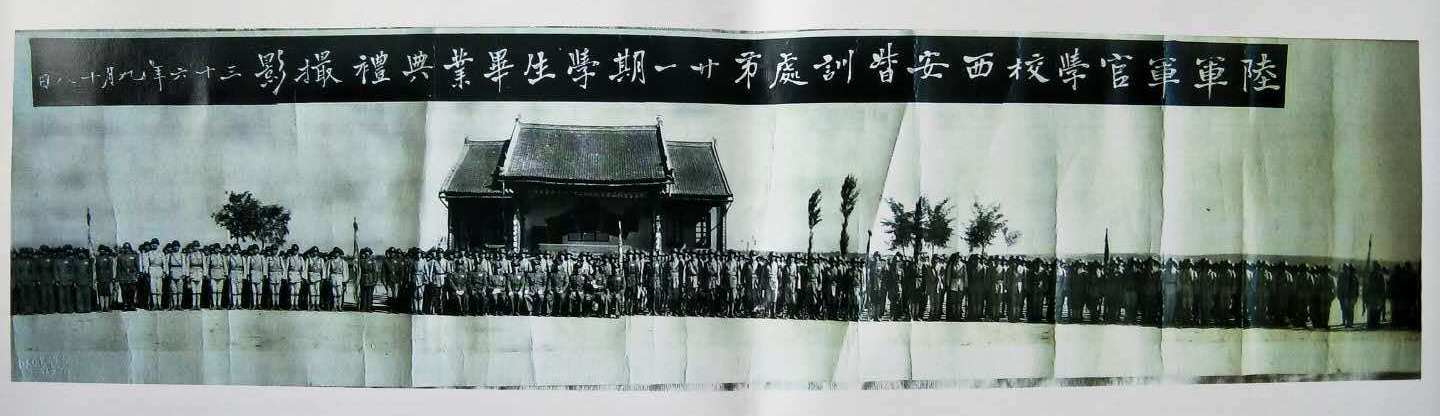 陸軍軍官學校西安督訓處第廿一期學生畢業典禮撮影三十六年九月十八日